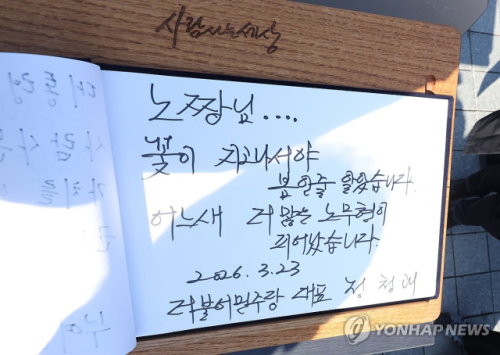 사람사는세상
노짱님....
꽃이 지고나서야
봄인줄 알았습니다.
어느새 더 많은 노무현이
피어났습니다.
2026. 3. 23
더불어민주당 대표 정청래
YONHAP NEWS